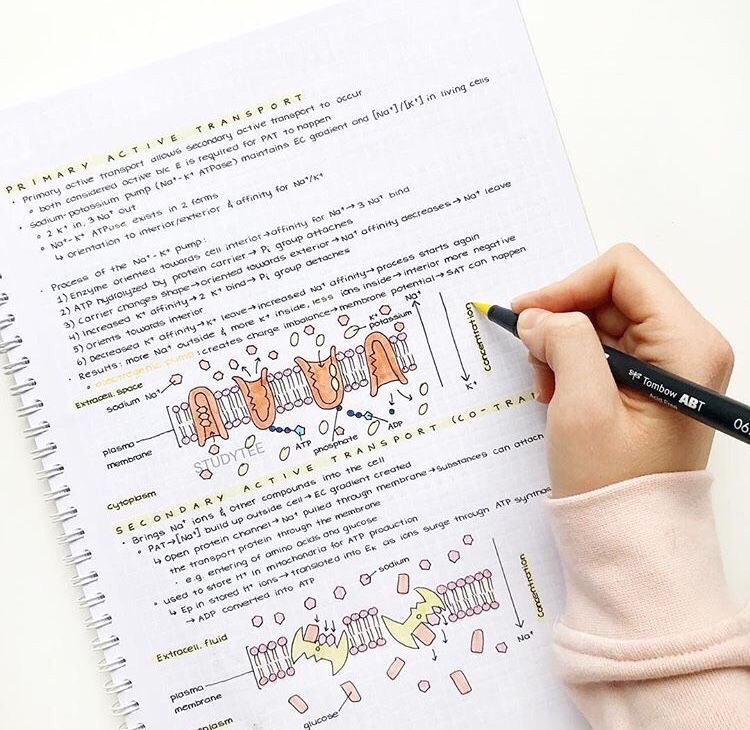 PRIMARY ACTIVE TRANSPORT
• Primary active transport allows secondary active transport to occur
◦ both considered active b/c E is required for PAT to happen
• Sodium-potassium pump (Na⁺-K⁺ ATPase) maintains EC gradient and [Na⁺]/[K⁺] in living cells
◦ 2 K⁺ in, 3 Na⁺ out
◦ Na⁺-K⁺ ATPase exists in 2 forms
↳ Orientation to interior/exterior & affinity for Na⁺/K⁺
• Process of the Na⁺-K⁺ pump:
1) Enzyme oriented towards cell interior→affinity for Na⁺→3 Na⁺ bind
2) ATP hydrolyzed by protein carrier→Pi group attaches
3) Carrier changes shape→oriented towards exterior→Na⁺ affinity decreases→Na⁺ leave
4) Increased K⁺ affinity→2 K⁺ bind→Pi group detaches
5) Orients towards interior
6) Decreased K⁺ affinity→K⁺ leave→increased Na⁺ affinity→process starts again
• Results: more Na⁺ outside & more K⁺ inside, less ions inside→interior more negative
◦ electrogenic pump: creates charge imbalance→membrane potential→SAT can happen
Extracell. space
sodium Na⁺
K⁺
potassium
Na⁺
K⁺
concentration
plasma
membrane
ATP
phosphate
ADP
STUDYTEE
cytoplasm
SECONDARY ACTIVE TRANSPORT (CO-TRA
• Brings Na⁺ ions & other compounds into the cell
◦ PAT→[Na⁺] build up outside cell→EC gradient created
↳ Open protein channel→Na⁺ pulled through membrane→substances can attach
the transport protein through the membrane
· e.g. entering of amino acids and glucose
◦ used to store H⁺ in mitochondria for ATP production
↳ Ep in stored H⁺ ions→translated into Ek as ions surge through ATP synthas
→ ADP converted into ATP
sodium
Extracell. fluid
concentration
Na⁺
plasma
membrane
glucose
Tombow ABT